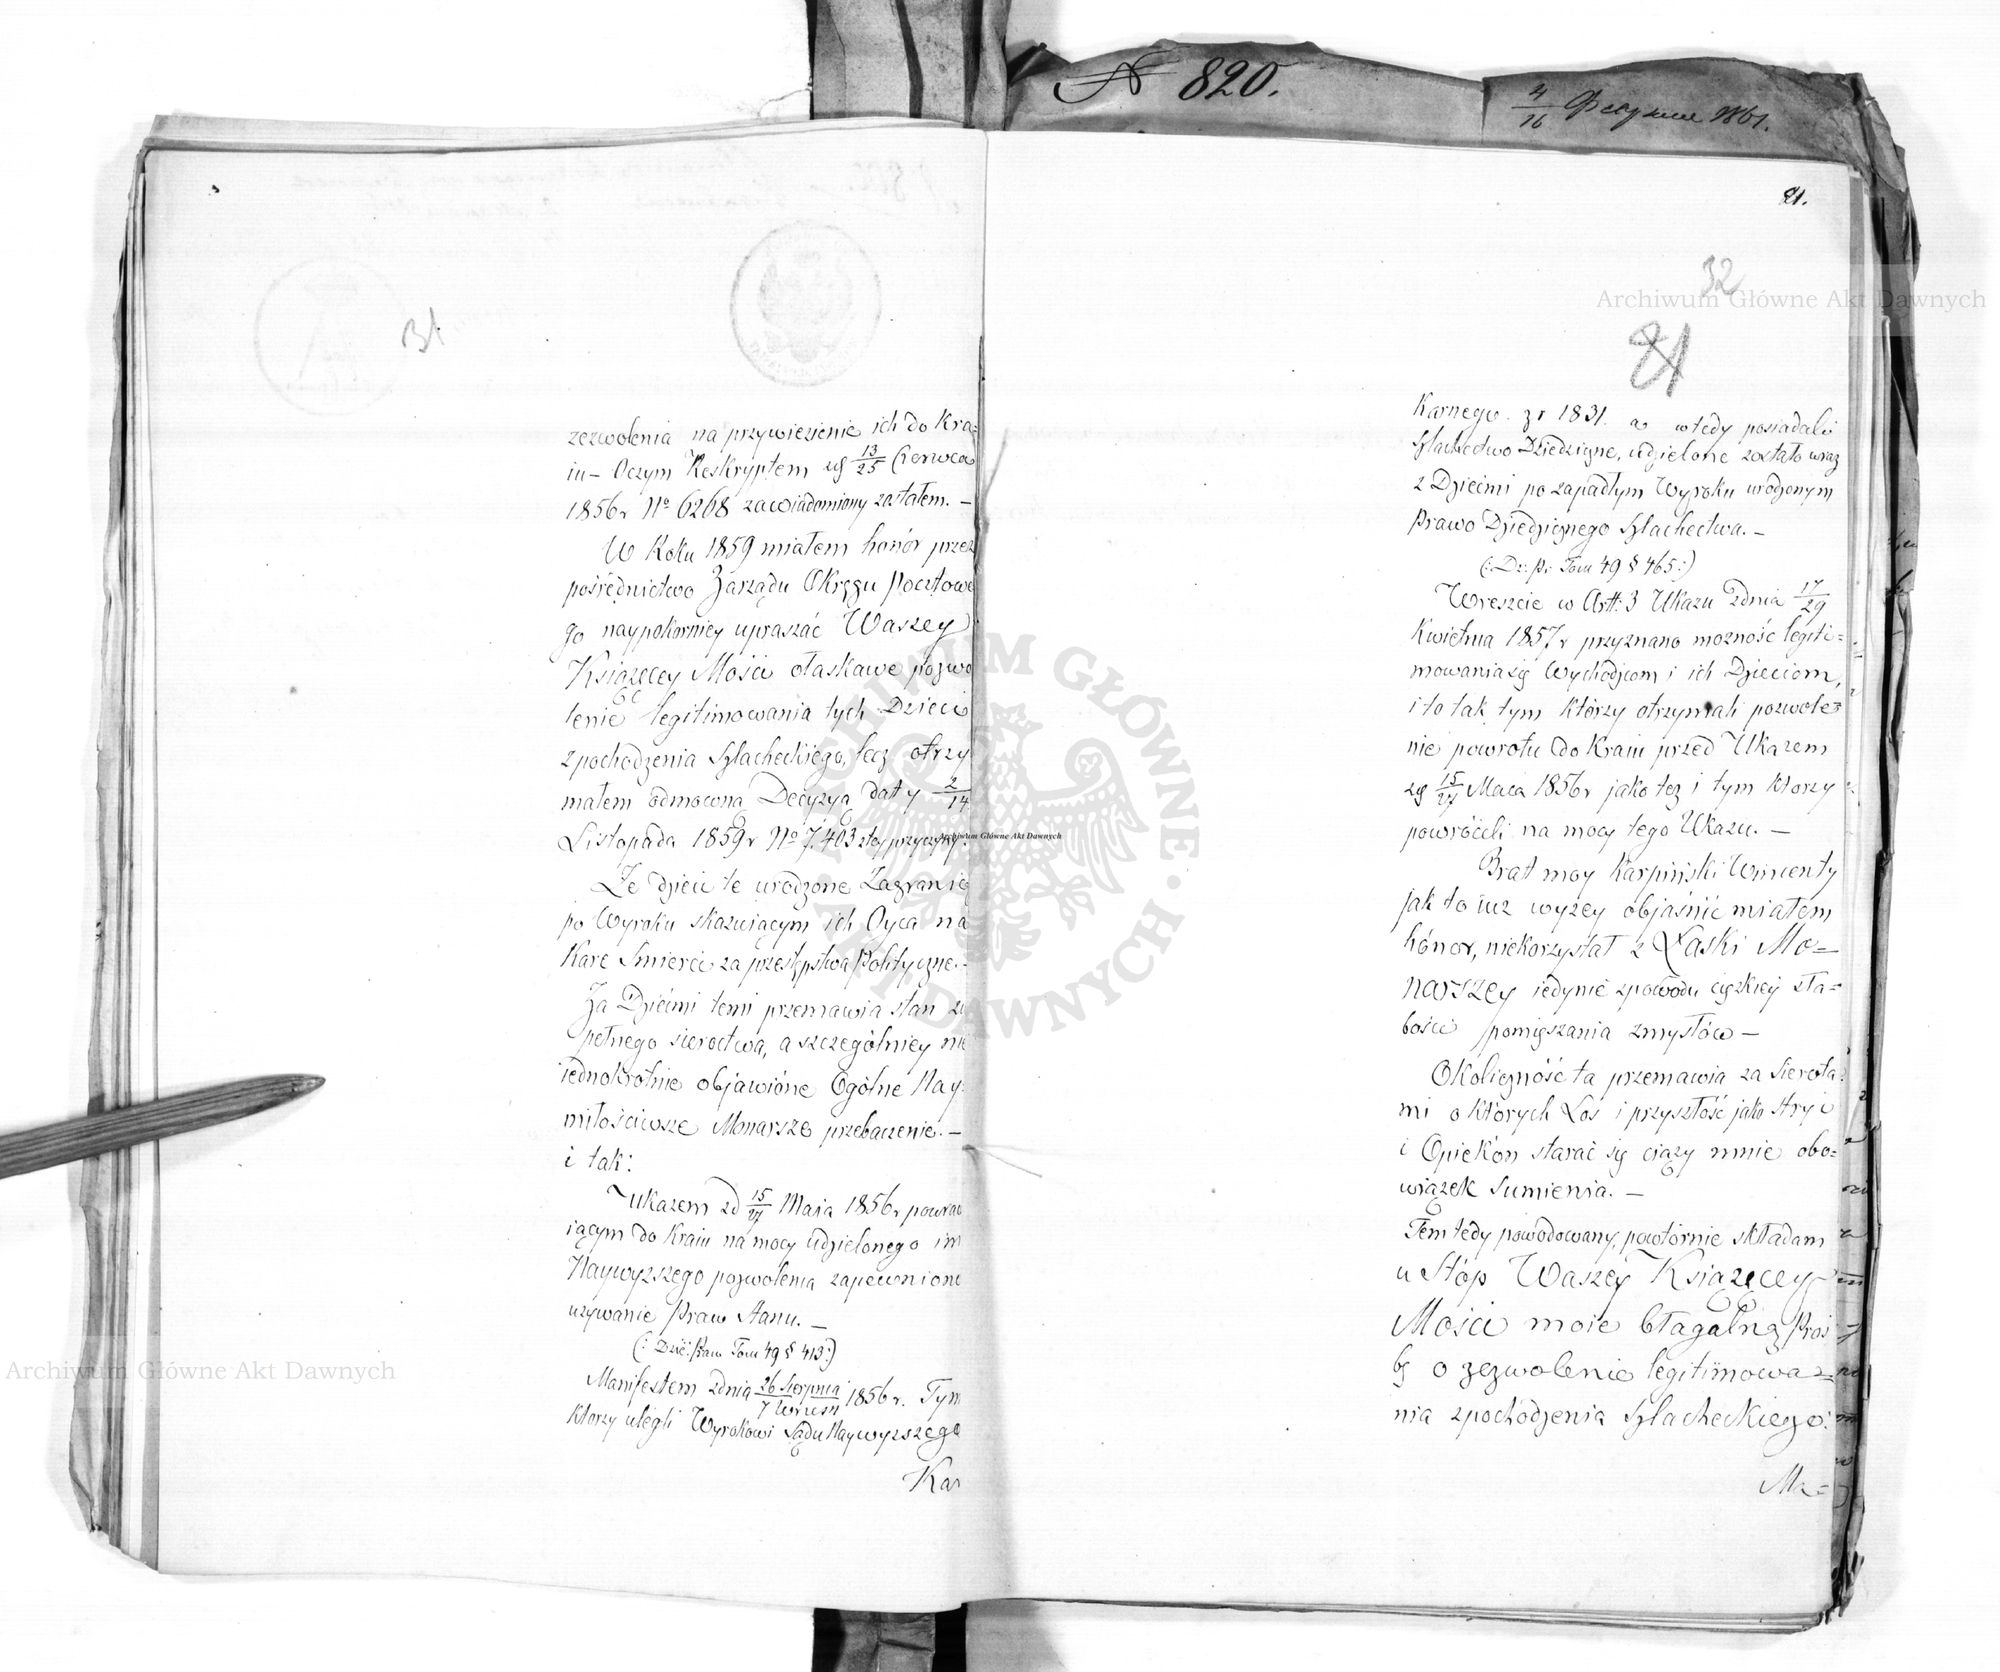 N 820.
4/16 1861.
31
zezwolenia na przywiezienie ich do Kra=
iu – Oczym Reskryptem zd 13/25 Czerwca
1856 r No 6268 zawiadomiony zostałem. –
W Roku 1859 miałem honór przez
pośrednictwo Zarządu Okręgu Pocztowe
go naypokorniey upraszać Waszey
Książęcey Mości o łaskawe pozwo
lenie legitimowania tych Dzieci
z pochodzenia Szlacheckiego, lecz otrzy
małem odmowną Decyzyą daty 2/14
Listopada 1859 r No 7,403 z tey przyczyny:
Że dzieci te urodzone Zagranicą
po Wyroku skazuiącym ich Oyca na
Karę Śmierci za przestępstwa Polityczne. –
Za Dziećmi temi przemawia stan zu
pełnego sieroctwa, a szczególniey nie
iednokrotnie objawione Ogólne Nay=
miłościwsze Monarsze przebaczenie. –
i tak:
Ukazem zd 15/27 Maia 1856 r powrac
iącym do Kraiu na mocy udzielonego im
Naywyższego pozwolenia zapewnione
używanie Praw Stanu. –
(: Dzie: Praw Tom 49 § 413:)
Manifestem z dnia 26 Sierpnia/7 Wrześn 1856 r. Tym
którzy ulegli Wyrokowi Sądu Naywyższego
Kar
81.
32
81
Karnego. z r 1831. a wtedy posiadali
Szlachectwo Dziedziczne, udzielone zostało wraz
z Dziećmi po zapadłym Wyroku urodzonym
Prawo Dziedzicznego Szlachectwa. –
(: Dz: Pr: Tom 49 § 465:)
Wreszcie w Artt: 3 Ukazu z dnia 17/29
Kwietnia 1857 r przyznano możność legiti=
mowania się Wychodzcom i ich Dzieciom,
i to tak tym którzy otrzymali pozwole=
nie powrotu do Kraiu przed Ukazem
zd 15/27 Maia 1856 r jako też i tym którzy
powrócili na mocy tego Ukazu. –
Brat moy Karpiński Wincenty
jak to iuz wyzey objaśnić miałem
hónor, niekorzystał z Łaski Mo=
narszey iedynie z powodu ciężkiey sła=
bości pomięszania zmysłów –
Okoliczność ta przemawia za Sierota=
mi o których Los i przyszłość jako Stryi
i Opiekón starać się ciąży mnie obo=
wiązek Sumienia. –
Tem tedy powodowany, powtórnie składam
u Stóp Waszey Książęcey
Mości moie błagalną Proś
bę o zezwolenie legitimowa=
nia z pochodzenia Szlacheckiego:
Ma=
Archiwum Główne Akt Dawnych
Archiwum Główne Akt Dawnych
Archiwum Główne Akt Dawnych
ARCHIWUM GŁÓWNE AKT DAWNYCH